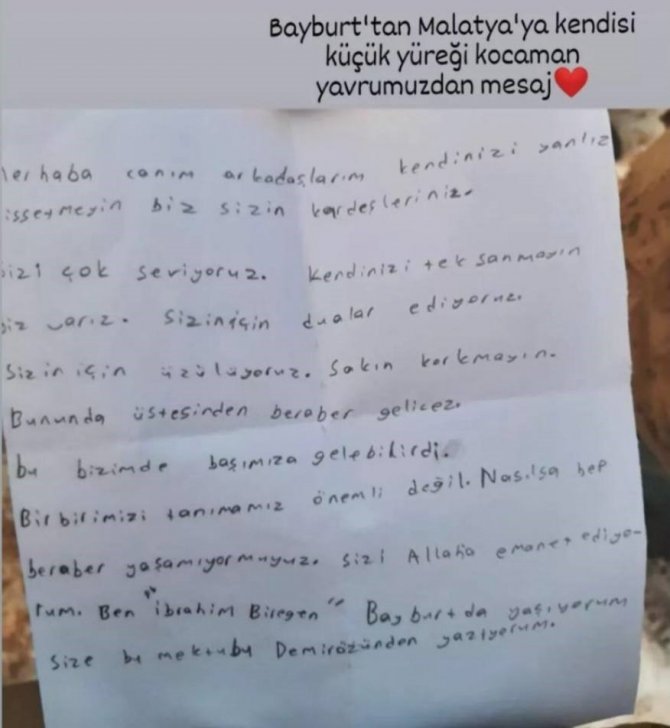 Bayburt'tan Malatya'ya kendisi
küçük yüreği kocaman
yavrumuzdan mesaj❤️
erhaba canım arkadaşlarım kendinizi yanlız
isseymeyin biz sizin kardeşleriniz.
izi çok seviyoruz. Kendinizi tek sanmayın
iz varız. Siziniçin dualar ediyoruz.
Sizin için üzülüyoruz. Sakın korkmayın.
Bununda üstesinden beraber gelicez.
bu bizimde başımıza gelebilirdi.
Birbirimizi tanımamız önemli değil. Nasılsa hep
beraber yaşamıyormuyuz. Sizi Allaha emanet ediyo-
rum. Ben "İbrahim Biregen" Bayburtda yaşıyorum
Size bu mektubu Demirözünden yazıyorum.